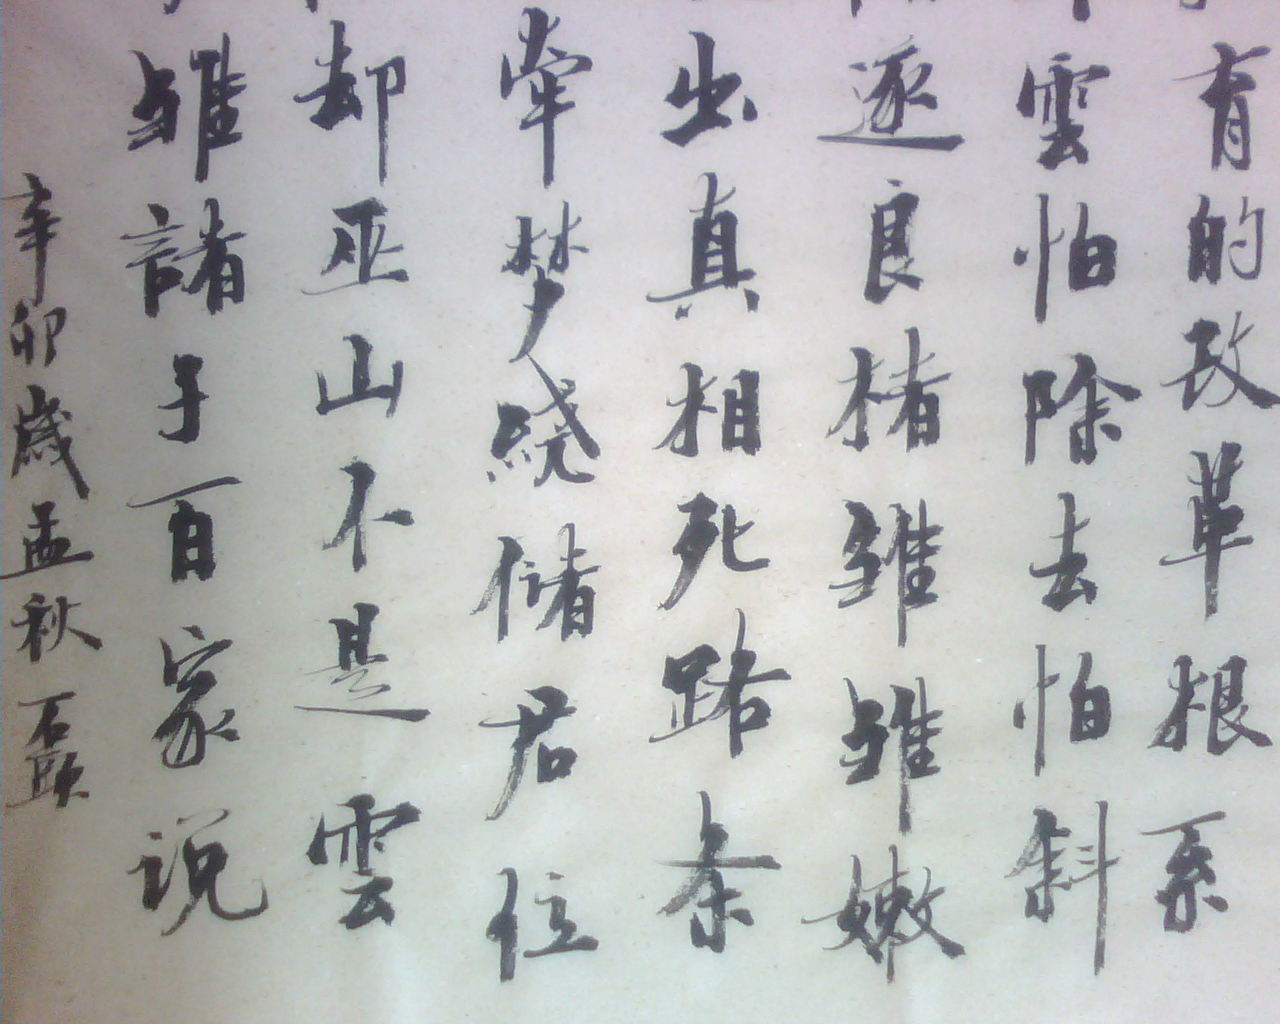 有的改革根系
雲怕除去怕斜
逐良楮雏雏嫩
出真相死路条
牵梦绕储君位
却巫山不是雲
雏諸子百家说
辛卯歲孟秋石